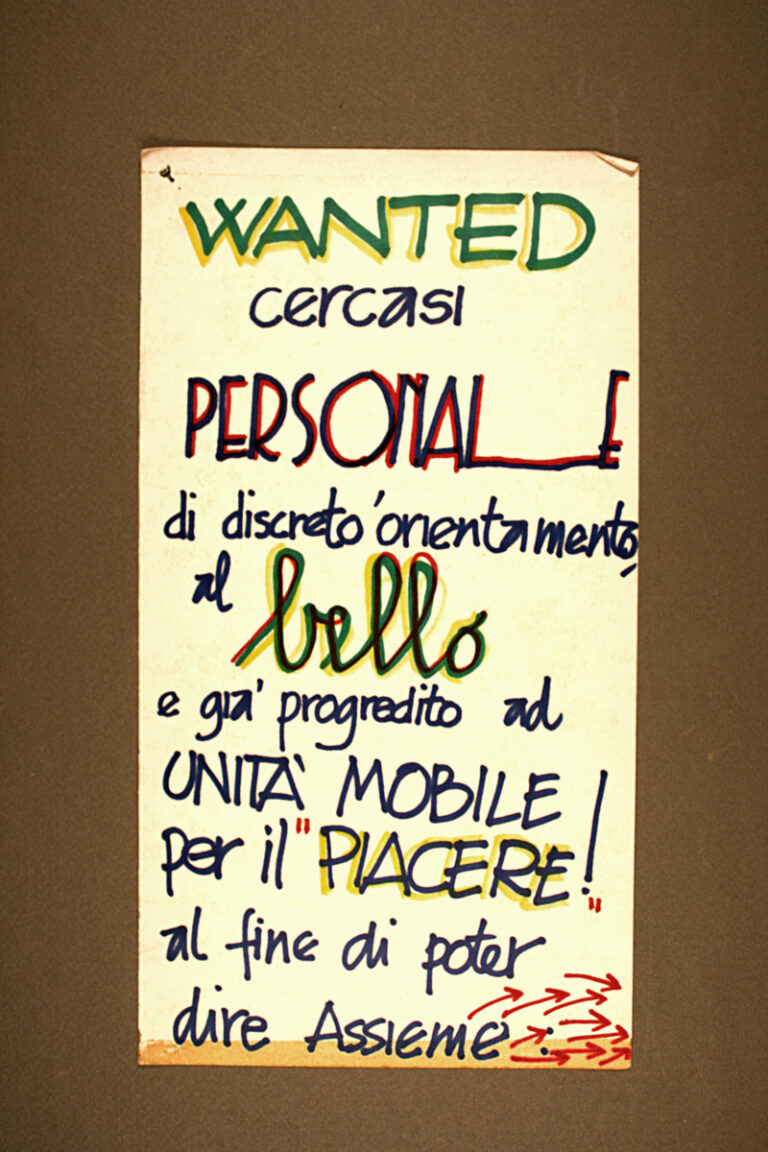 WANTED
cercasi
PERSONALE
di discreto 'orientamento,
al bello
e gia' progredito ad
UNITÀ MOBILE
per il "PIACERE!"
al fine di poter
dire Assieme: